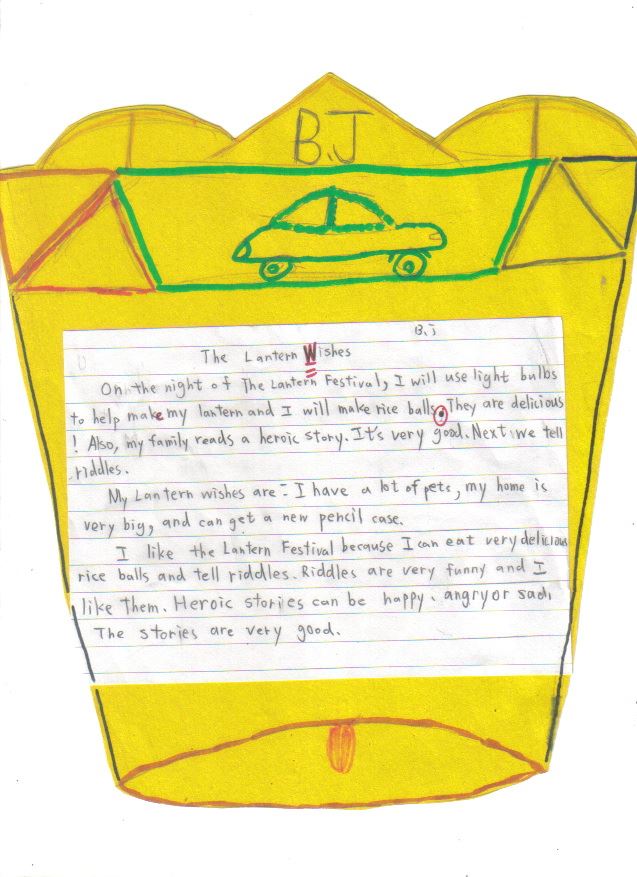 B.J
B.j
The Lantern Wishes
On the night of The Lantern Festival, I will use light bulbs
to help make my lantern and I will make rice balls. They are delicious
! Also, my family reads a heroic story. It's very good. Next we tell
riddles.
My Lantern wishes are: I have a lot of pets, my home is
very big, and can get a new pencil case.
I like the Lantern Festival because I can eat very delicious
rice balls and tell riddles. Riddles are very funny and I
like them. Heroic stories can be happy, angry or sad.
The stories are very good.